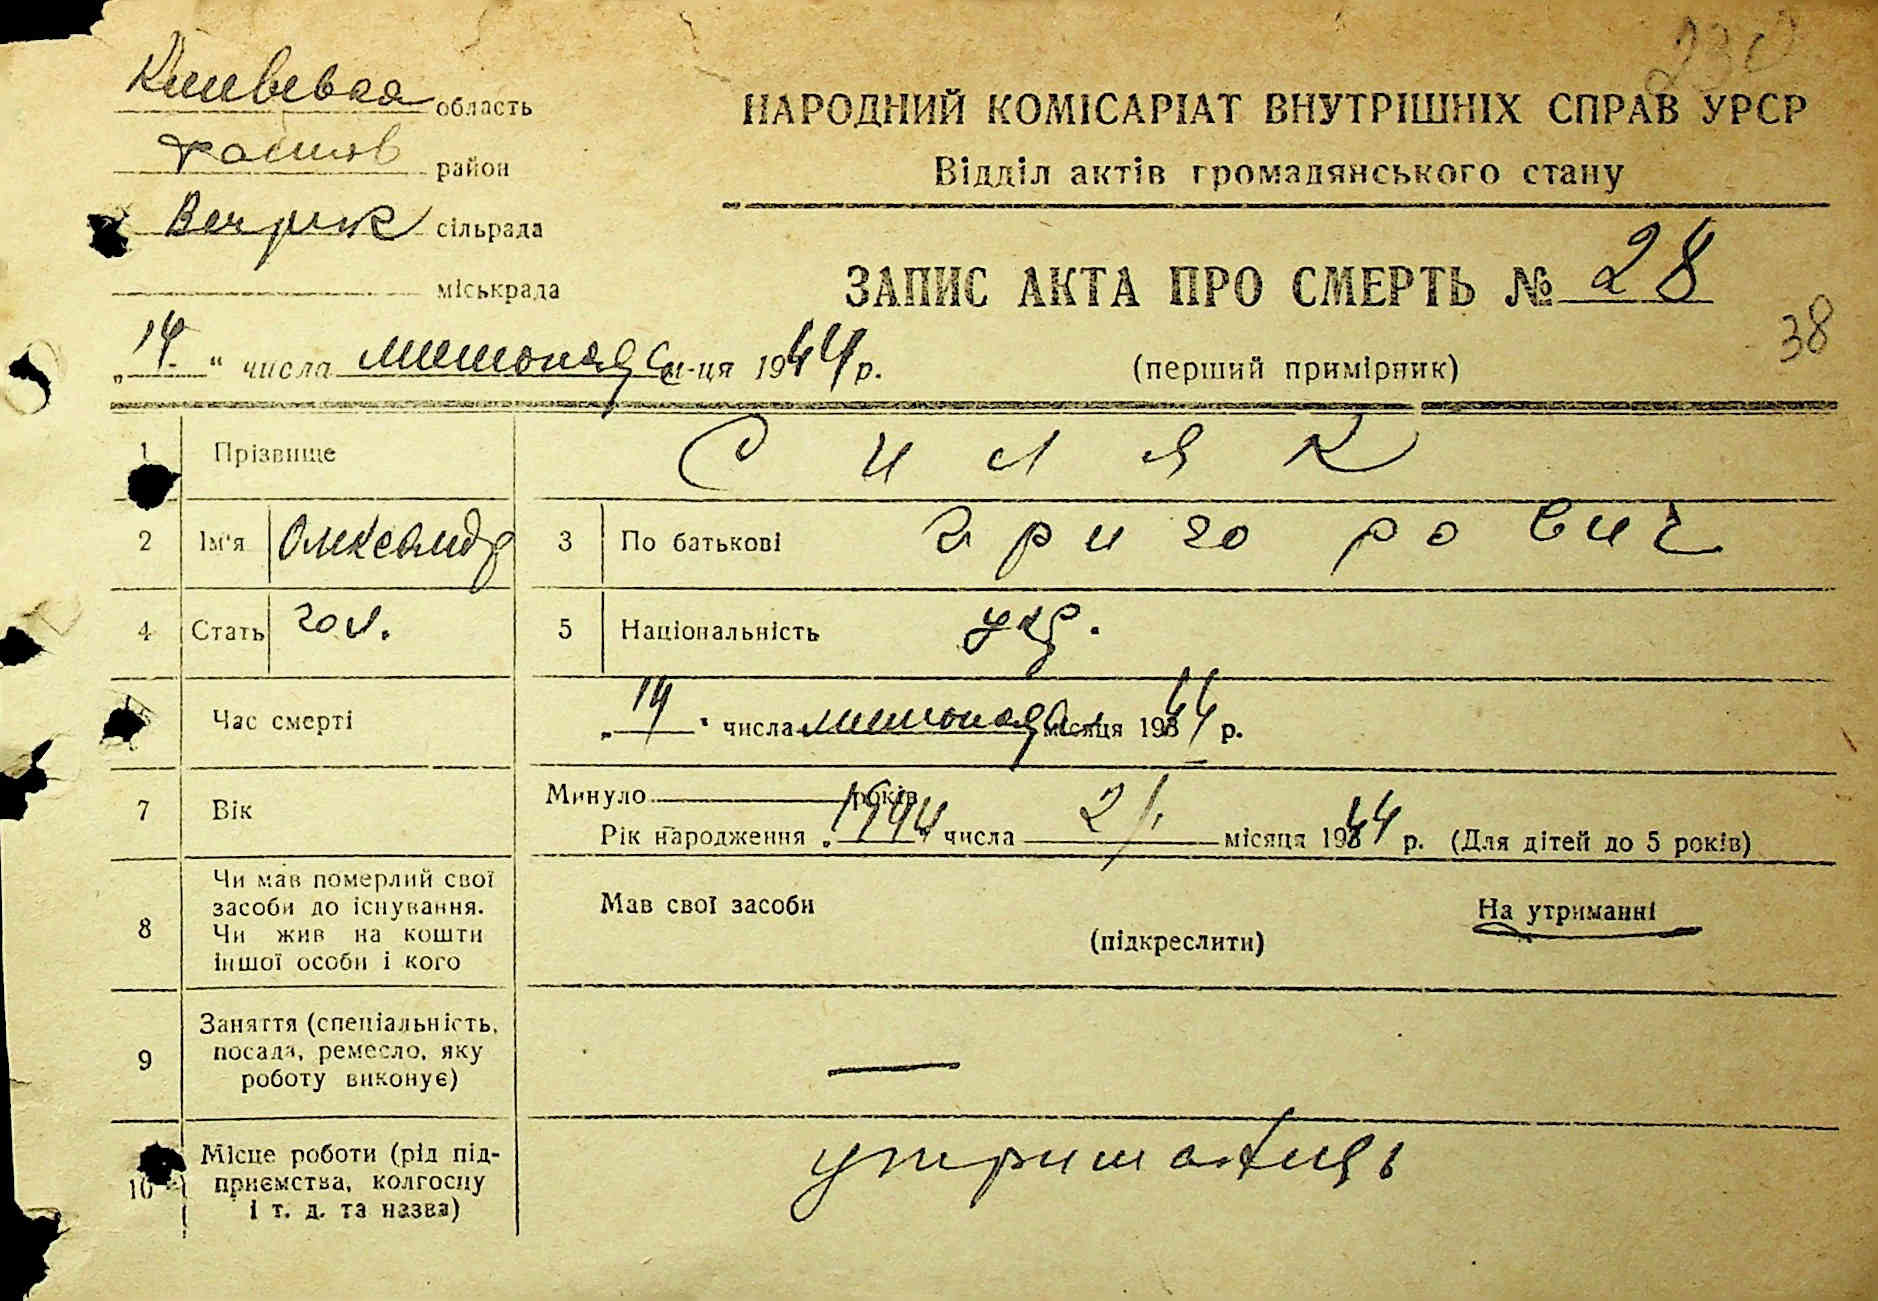 230
Киевская область
НАРОДНИЙ КОМІСАРІАТ ВНУТРІШНІХ СПРАВ УРСР
Фастов район
Відділ актів громадянського стану
Веприк сільрада
міськрада
ЗАПИС АКТА ПРО СМЕРТЬ № 28
38
„14“ числа листопада м-ця 1944 р.
(перший примірник)
1 Прізвище Силяк
2 Ім'я Олександр 3 По батькові Григорович
4 Стать чол. 5 Національність укр.
Час смерті „14“ числа листопада місяця 1944 р.
7 Вік Минуло років
Рік народження „1944“ числа 2/ місяця 1944 р. (Для дітей до 5 років)
8 Чи мав померлий свої
засоби до існування.
Чи жив на кошти
іншої особи і кого
Мав свої засоби
(підкреслити)
На утриманні
9 Заняття (спеціальність,
посада, ремесло, яку
роботу виконує)
—
10 Місце роботи (рід під-
приємства, колгоспу
і т. д. та назва)
утриманець